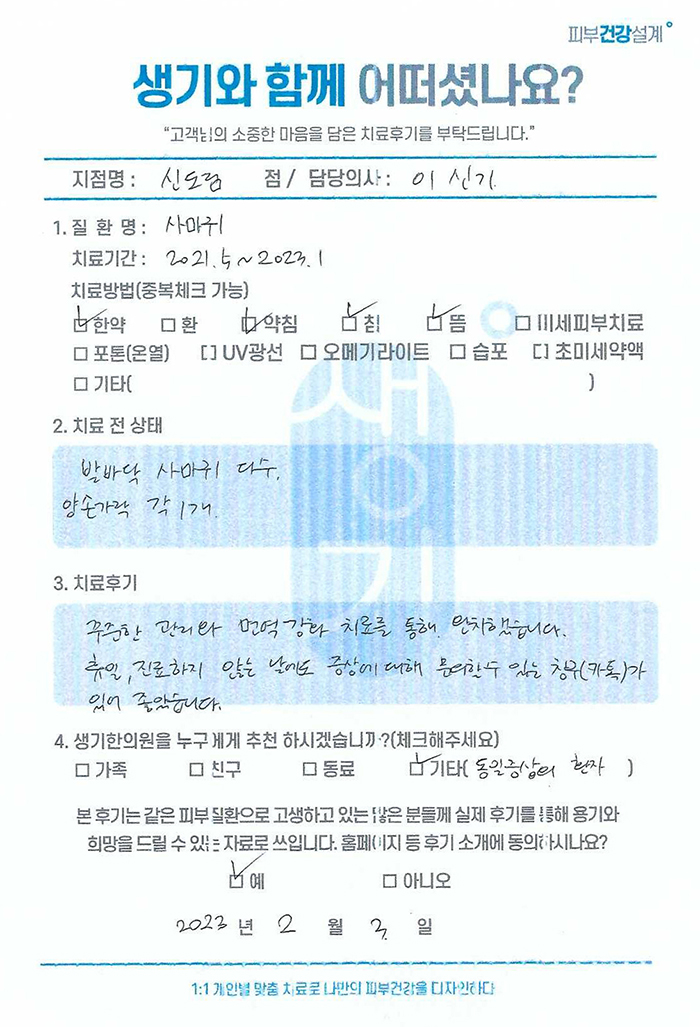 피부건강설계
생기와 함께 어떠셨나요?
"고객님의 소중한 마음을 담은 치료후기를 부탁드립니다."
지점명 : 신도림 점 / 담당의사 : 이신기
1. 질 환 명 : 사마귀
치료기간 : 2021. 5 ~ 2023. 1
치료방법(중복체크 가능)
☑한약 □환 ☑약침 ☑침 ☑뜸 □미세피부치료
□포톤(온열) □UV광선 □오메기라이트 □습포 □초미세약액
□기타( )
2. 치료 전 상태
발바닥 사마귀 다수,
양손가락 각 1개.
생기
3. 치료후기
꾸준한 관리와 면역강화 치료를 통해 완치했습니다.
휴일, 진료하지 않는 날에도 증상에 대해 문의할 수 있는 창구(카톡)가
있어 좋았습니다.
4. 생기한의원을 누구에게 추천 하시겠습니까?(체크해주세요)
□가족 □친구 □동료 ☑기타( 동일증상의 환자 )
본 후기는 같은 피부질환으로 고생하고 있는 많은 분들께 실제 후기를 통해 용기와
희망을 드릴 수 있는 자료로 쓰입니다. 홈페이지 등 후기 소개에 동의하시나요?
☑예 □아니오
2023 년 2 월 3. 일
1:1 개인별 맞춤 치료로 나만의 피부건강을 디자인하다